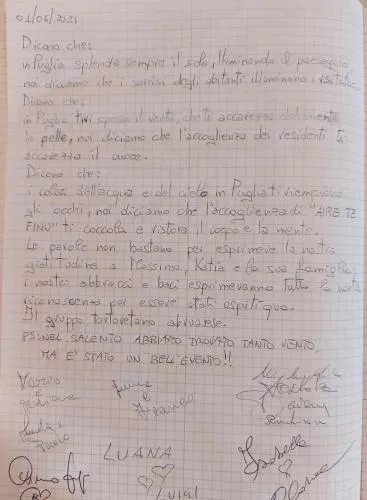 01/06/2021
Dicono che:
in Puglia splende sempre il sole, illuminando il paesaggio,
noi diciamo che i sorrisi degli abitanti illuminano i visitatori
Dicono che:
in Puglia tiri spesso il vento, che ti accarezza dolcemente
la pelle, noi diciamo che l'accoglienza dei residenti ti
accarezza il cuore.
Dicono che:
i colori dell'acqua e del cielo in Puglia ti riempiono
gli occhi, noi diciamo che l'accoglienza di "AIRE TE
FINU" ti coccola e ristora il corpo e la mente.
Le parole non bastano per esprimere la nostra
gratitudine a Massimo, Katia e la sua famiglia,
i nostri abbracci e baci esprimeranno tutta la nostra
riconoscenza per essere stati ospiti qua.
Il gruppo tortoretano abruzzese.
PS: NEL SALENTO ABBIAMO TROVATO TANTO VENTO,
MA E' STATO UN BELL'EVENTO!!
LUANA
Isabella
LUIGI